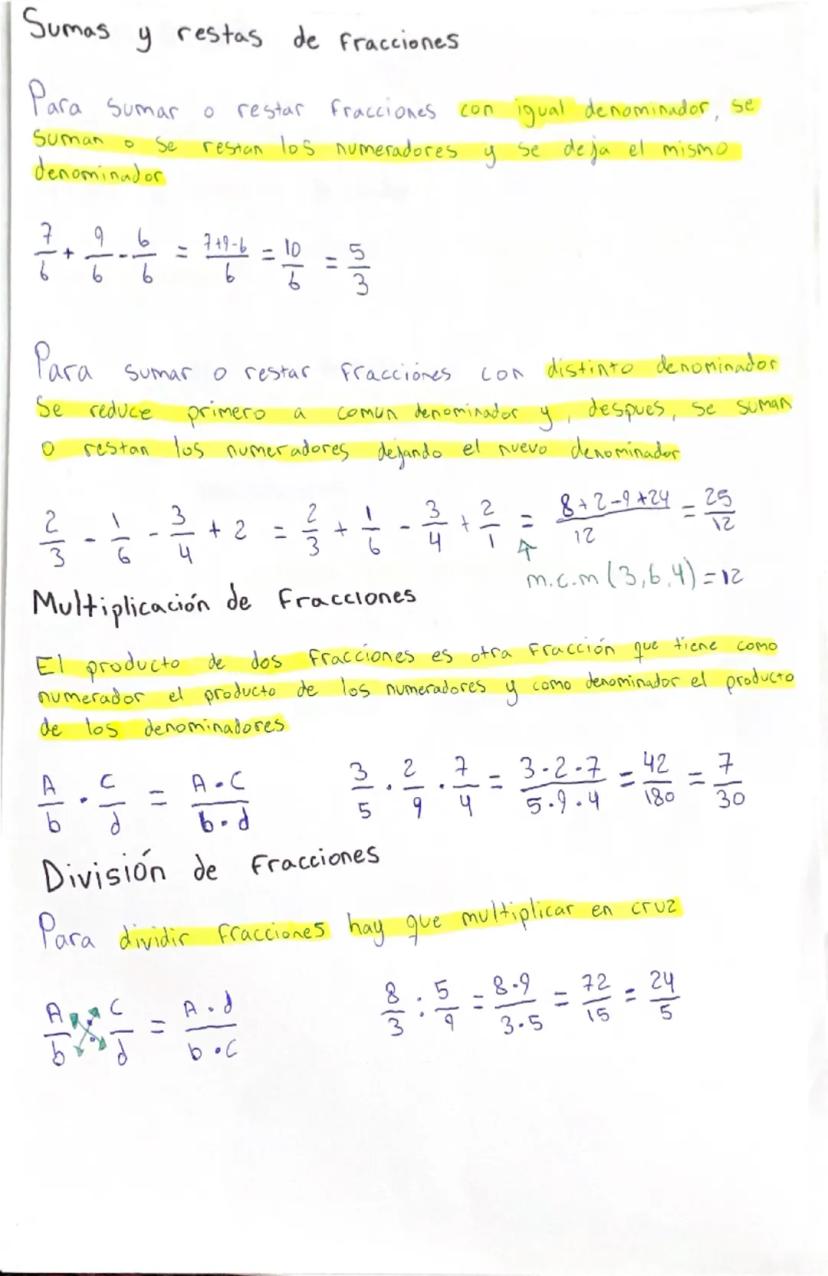 Sumas y restas de fracciones
Para sumar o restar fracciones con igual denominador, se
suman o se restan los numeradores y se deja el mismo
denominador
7/6 + 9/6 - 6/6 = 7+9-6/6 = 10/6 = 5/3
Para sumar o restar fracciónes con distinto denominador
se reduce primero a común denominador y, despues, se suman
o restan los numeradores dejando el nuevo denominador
2/3 - 1/6 - 3/4 + 2 = 2/3 + 1/6 - 3/4 + 2/1 = 8+2-9+24/12 = 25/12
m.c.m (3,6,4)=12
Multiplicación de fracciones
El producto de dos fracciones es otra fracción que tiene como
numerador el producto de los numeradores y como denominador el producto
de los denominadores
A/b · C/d = A·C/b·d 3/5 · 2/9 · 7/4 = 3·2·7/5·9·4 = 42/180 = 7/30
División de fracciones
Para dividir fracciones hay que multiplicar en cruz
A/b C/d = A·d/b·C 8/3 : 5/9 = 8·9/3·5 = 72/15 = 24/5